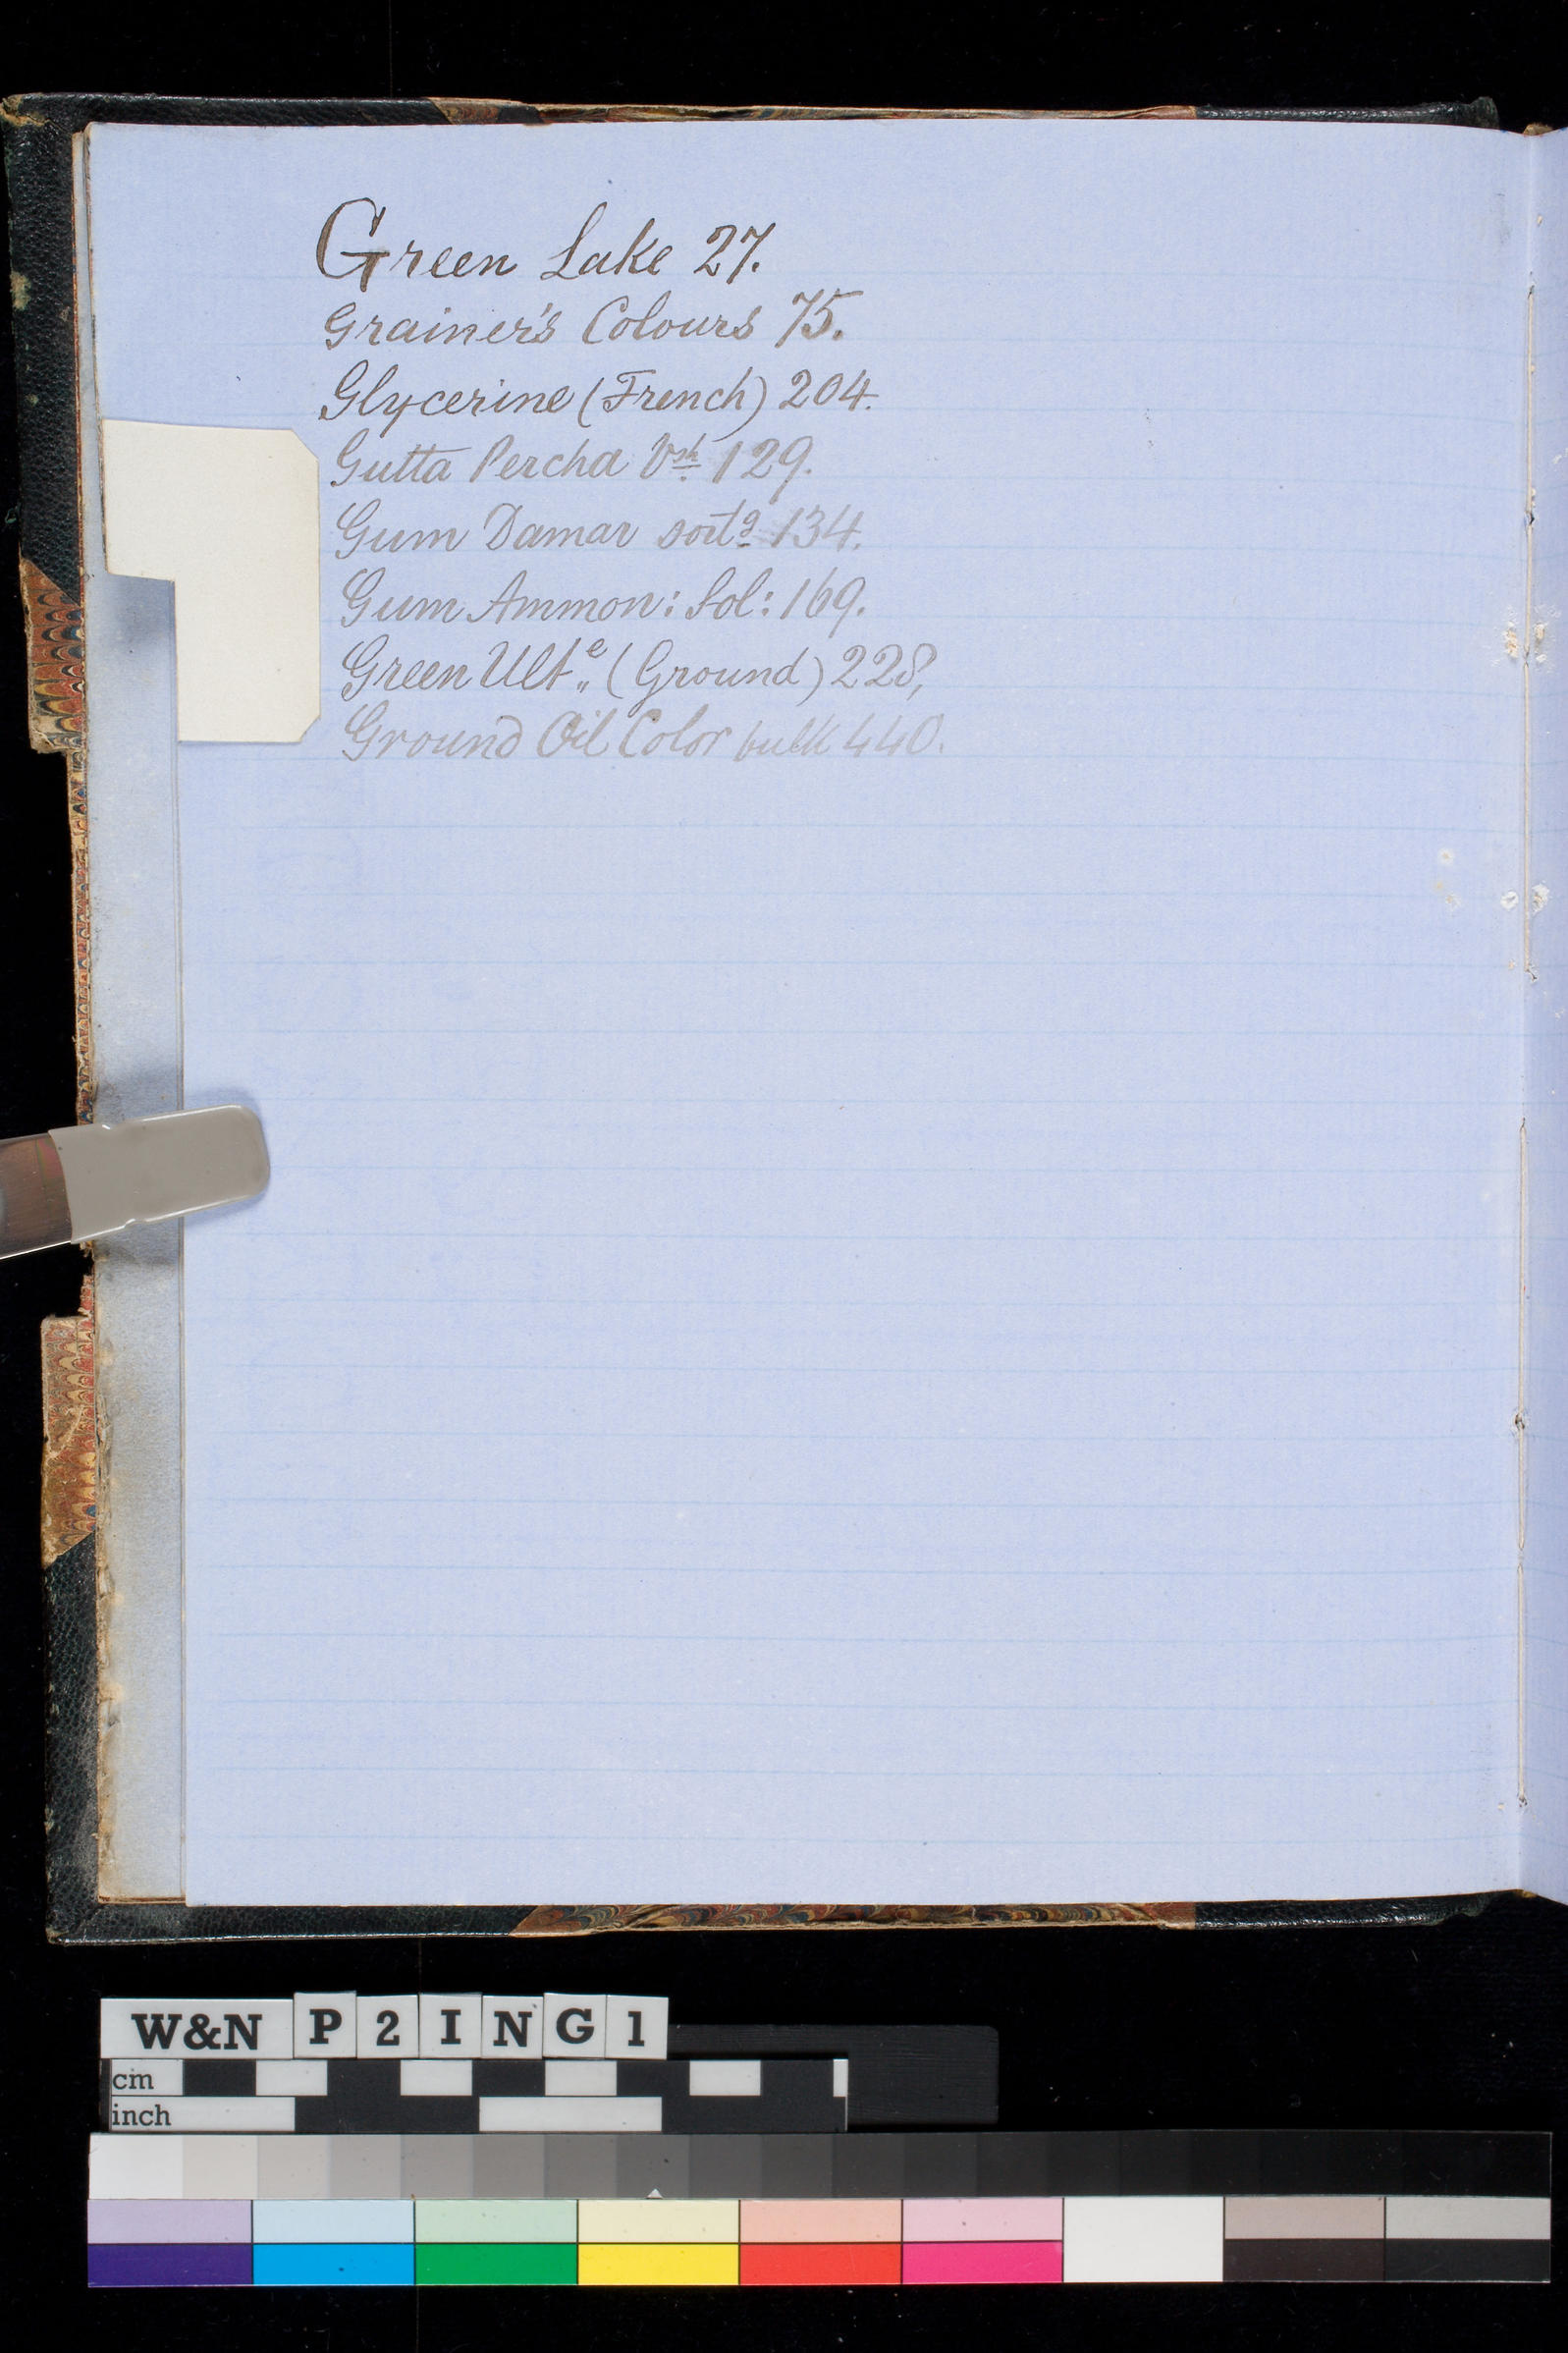 Green Lake 27.
Grainer's Colours 75.
Glycerine (French) 204.
Gutta Percha Vsh. 129.
Gum Damar sortg 134.
Gum Ammon: Sol: 169.
Green Ulte„ (Ground) 228,
Ground Oil Color bulk 440.
W&N P 2 I N G 1
cm
inch